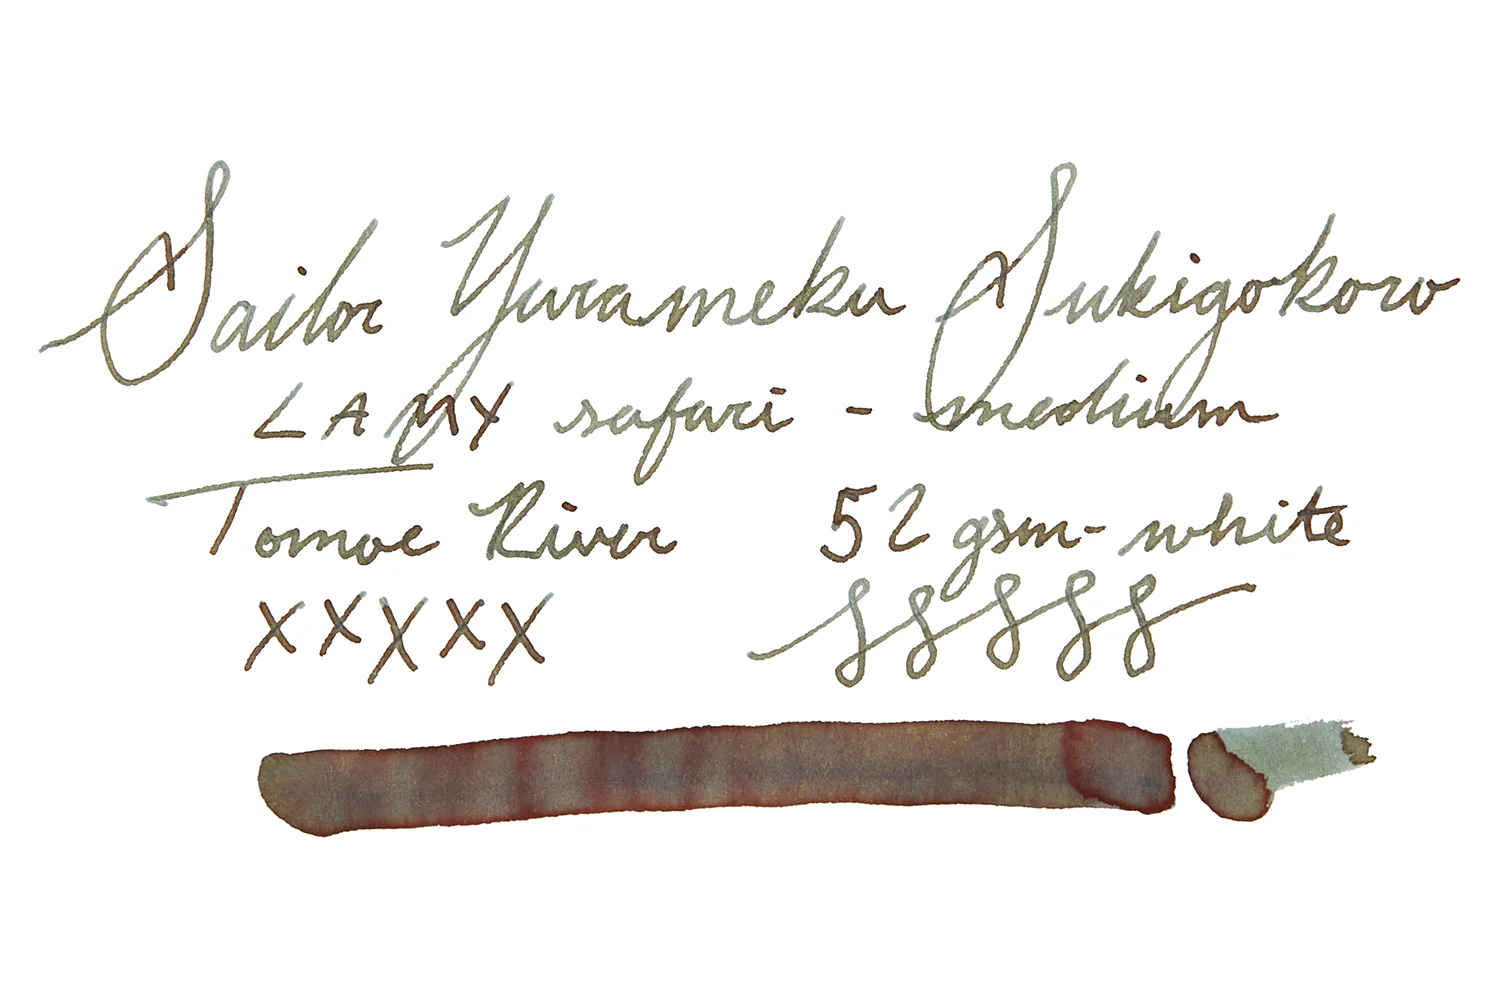 Sailor Yurameku Sukigokoro
LAMY safari - medium
Tomoe River 52 gsm - white
xxxxx